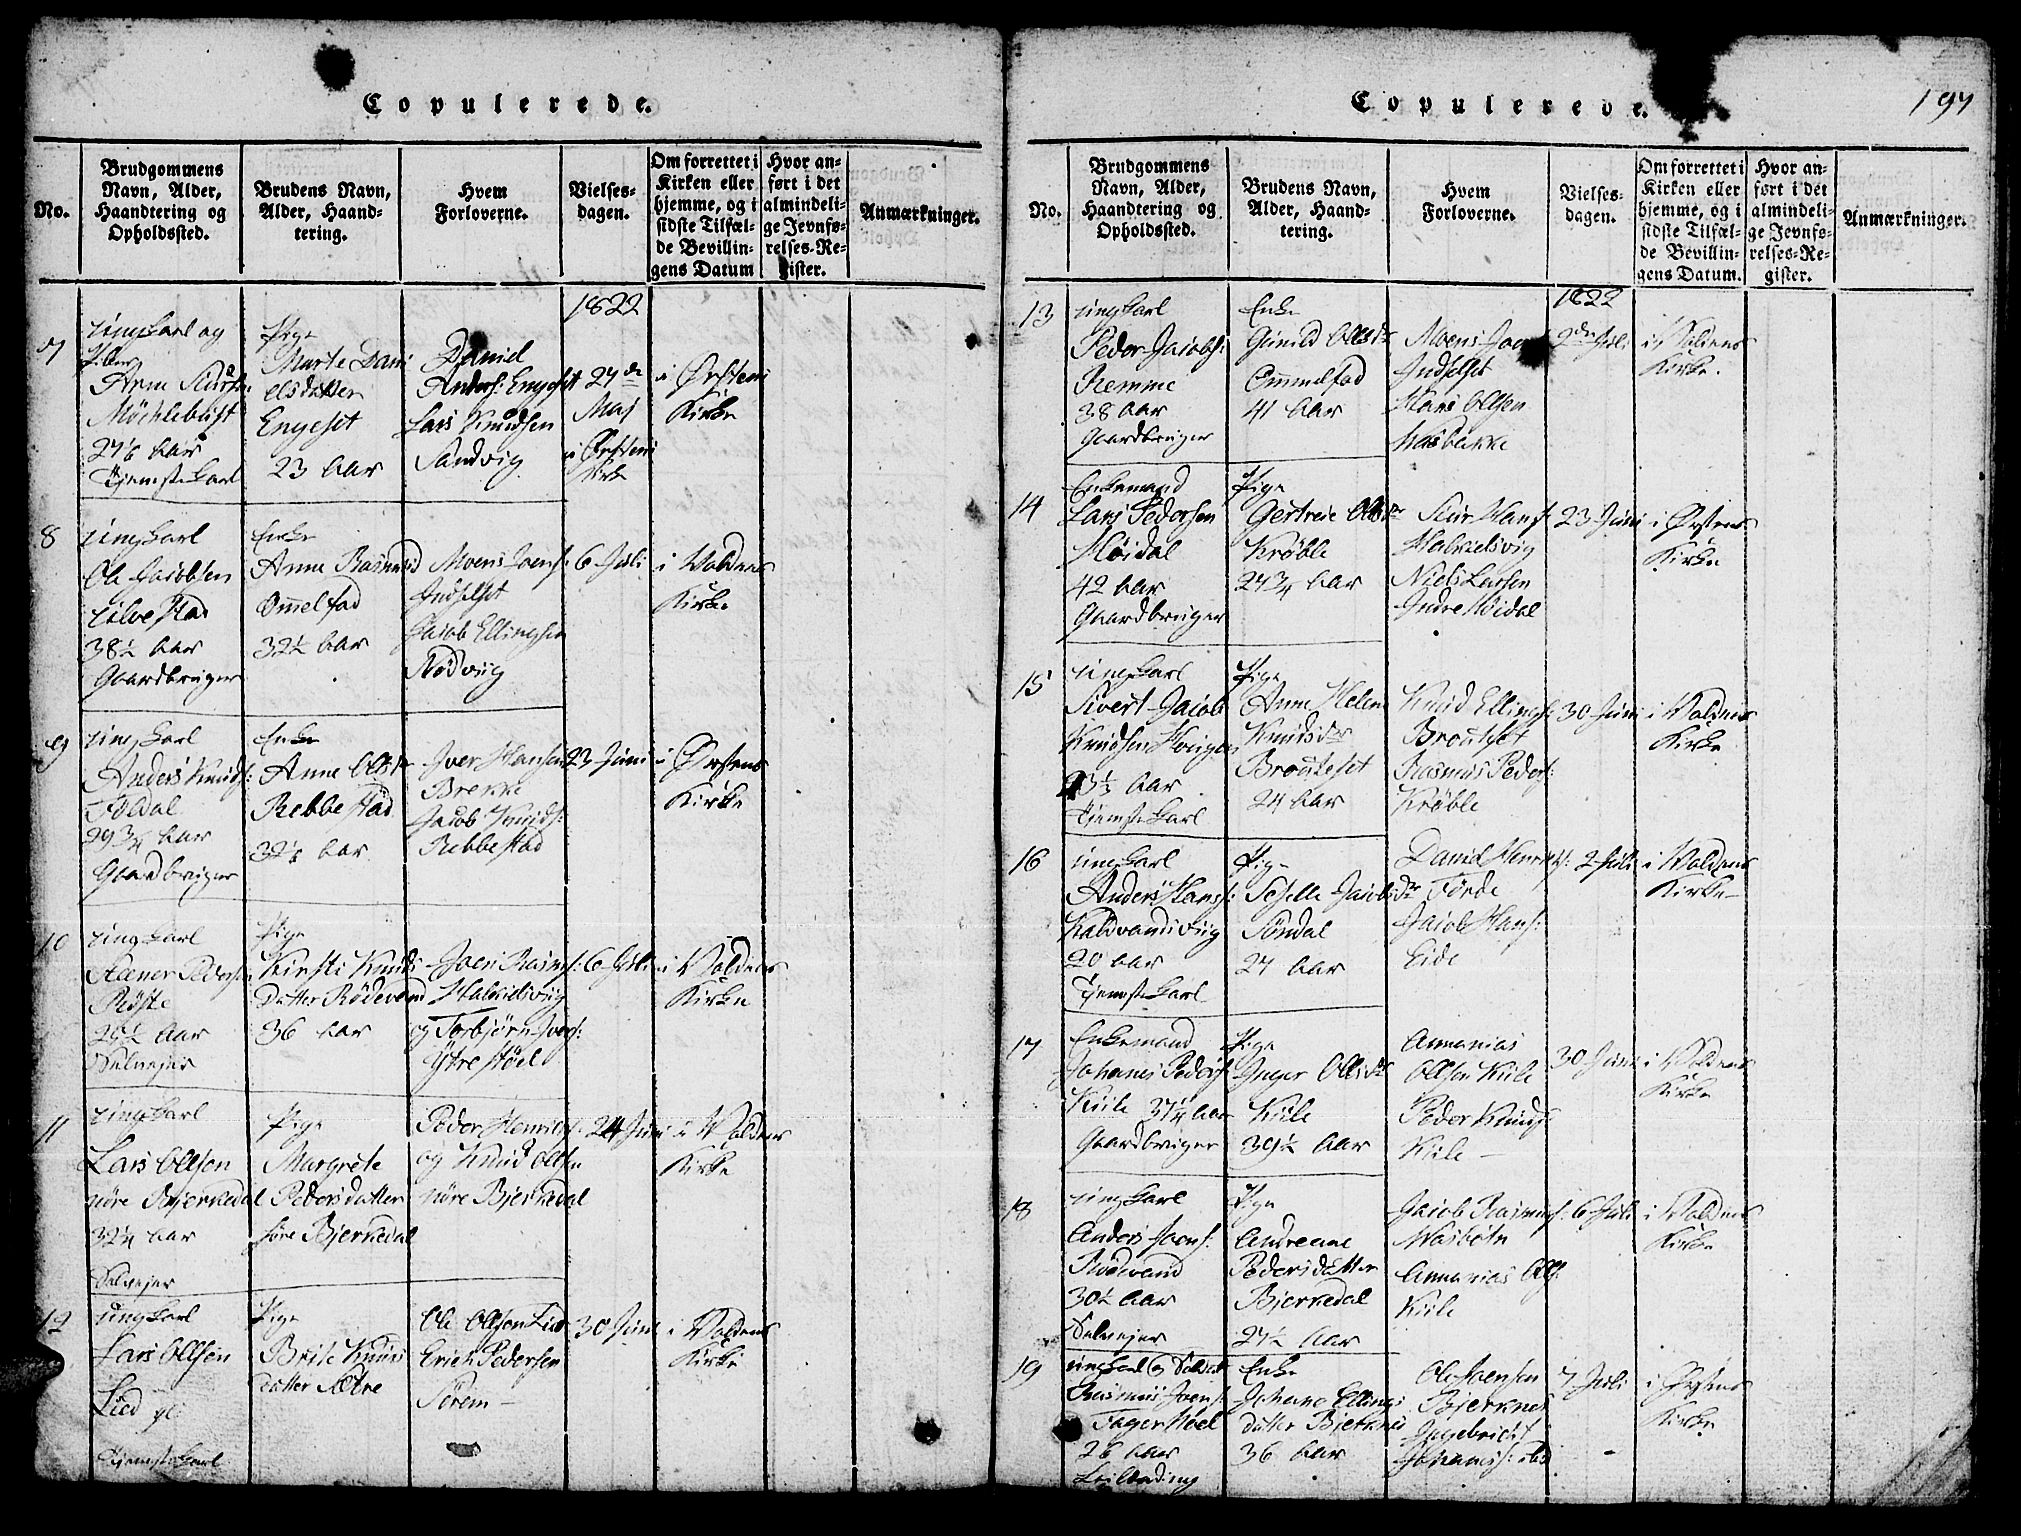 Copulerede.
No.
Brudgommens
Navn, Alder,
Haandtering og
Opholdssted.
Brudens Navn,
Alder, Haand-
tering.
Hvem
Forloverne.
Vielses-
dagen.
Om forrettet i
Kirken eller
hjemme, og i
sidste Tilfæl-
de Bevillin-
gens Datum
Hvor an-
ført i det
almindeli-
ge Jevnfø-
relses-Re-
gister.
Anmærkninger.
1822
7
ungkarl og
Møchlebust
27 1/2 Aar
Tjenstekarl
Pige
Marte Dani
elsdatter
Engeset
23 Aar
Daniel
Anders: Engeset
Lars Knudsen
Sandvig
27 de
Maj
i Ørsten
Kirke
i Ørstens
Kirke
8
ungkarl
Ole Jacobsen
38 1/2 Aar
Gaardbruger
Enke
Anne Rasmusd
Ommelstad
32 1/2 Aar
Moens Joens:
Indselset
Jacob Ellingsen
Rødviig
6 Juli
i Voldens
Kirke
9
ungkarl
Anders Knuds:
Foldal
29 3/4 Aar
Gaardbruger
Enke
Anne Olsdr
Rebbestad
Aar
Iver Hansen
Brekke
Jacob Knuds:
Rebbestad
23 Juni
i Ørstens
Kirke
10
ungkarl
Steener Pedersen
Røste
29 1/2 Aar
Selvejer
Pige
Kirsti Knuds
Datter Rødevand
36 Aar
Joen Rasms:
Halkielsviig
og Torbjørn Ivers:
Ytrestøel
6 Juli
i Voldens
Kirke
11
ungkarl
Lars Ollson
nøre Bjerkedal
32 1/4 Aar
Selvejer
Pige
Margrete
Pedersdatter
søre Bjerkedal
Peder Henriks:
og Knud Olsen
nøre Bjerkedal
24 Juni
i Voldens
Kirke
12
ungkarl
Lars Ollsen
Lied
Tjenstekarl
Pige
Brite Knuds
datter Sætre
Ole Ollson Lied
Erich Pedersen
Sørem
30 Juni
i Voldens
Kirke
Copulerede.
197
No.
Brudgommens
Navn, Alder,
Haandtering og
Opholdssted.
Brudens Navn,
Alder, Haand-
tering.
Hvem
Forloverne.
Vielses-
dagen.
Om forrettet i
Kirken eller
hjemme, og i
sidste Tilfæl-
de Bevillin-
gens Datum.
Hvor an-
ført i det
almindeli-
ge Jevnfø-
relses-Re-
gister.
Anmærkninger.
1822
13
ungkarl
Peder Jacobs:
Remme
38 Aar
Gaardbruger
Enke
Gunild Olsdr
Ommelstad
41 Aar
Moens Joens
Indselset
Hans Ollsen
Aasbakke
2den Juli
i Voldens
Kirke.
14
Enkemand
Lars Pedersen
Møidal
42 Aar
Gaardbruger
Pige
Gertrue Olsdr
Krøble
27 3/4 Aar
Siur Hans:
Halkielsvig
Niels Larsen
Indre Møidal
23 Juni
i Ørstens
Kirke
15
ungkarl
Sivert Jacob
Knudsen Hovigen
23 1/2 Aar
Tjenstekarl
Pige
Anne Helene
Knudsdr
Brouteset
24 Aar
Knud Ellings:
Broutset
Rasmus Peders:
Krøble
30 Juni
i Voldens
Kirke
16
ungkarl
Anders Hans:
Kaldvandsviig
20 Aar
Tjenstekarl
Pige
Seselle Jacobsdr
Søndal
27 Aar
David Henriks:
Førde
Jacob Hans:
Eide
2 Juli
i Voldens
Kirke
17
Enkemand
Johanes Peders:
Kiile 37 1/4 Aar
Gaardbruger
Pige
Inger Ollsdr
Kiile
39 1/2 Aar
Annanias
Ollsen Kiile
Peder Knuds:
Kiile
30 Juni
i Voldens
Kirke
18
ungkarl
Anders Joens:
Rødevand
30 1/2 Aar
Selvejer
Pige
Andreane
Pedersdatter
Bjerkedal
27 1/2 Aar
Jacob Rasmus:
Aasbøtn
Annanias Ols:
Kiile
6 Juli
i Voldens
Kirke
19
ungkarl og Soldat
Rasmus Joens:
26 Aar
Leilending
Enke
Johane Ellings
datter Bjerknes
36 Aar
Ole Joensen
Bjerknes
Ingebricht
Johanes: ibd
7 Juli
i Ørstens
Kirke